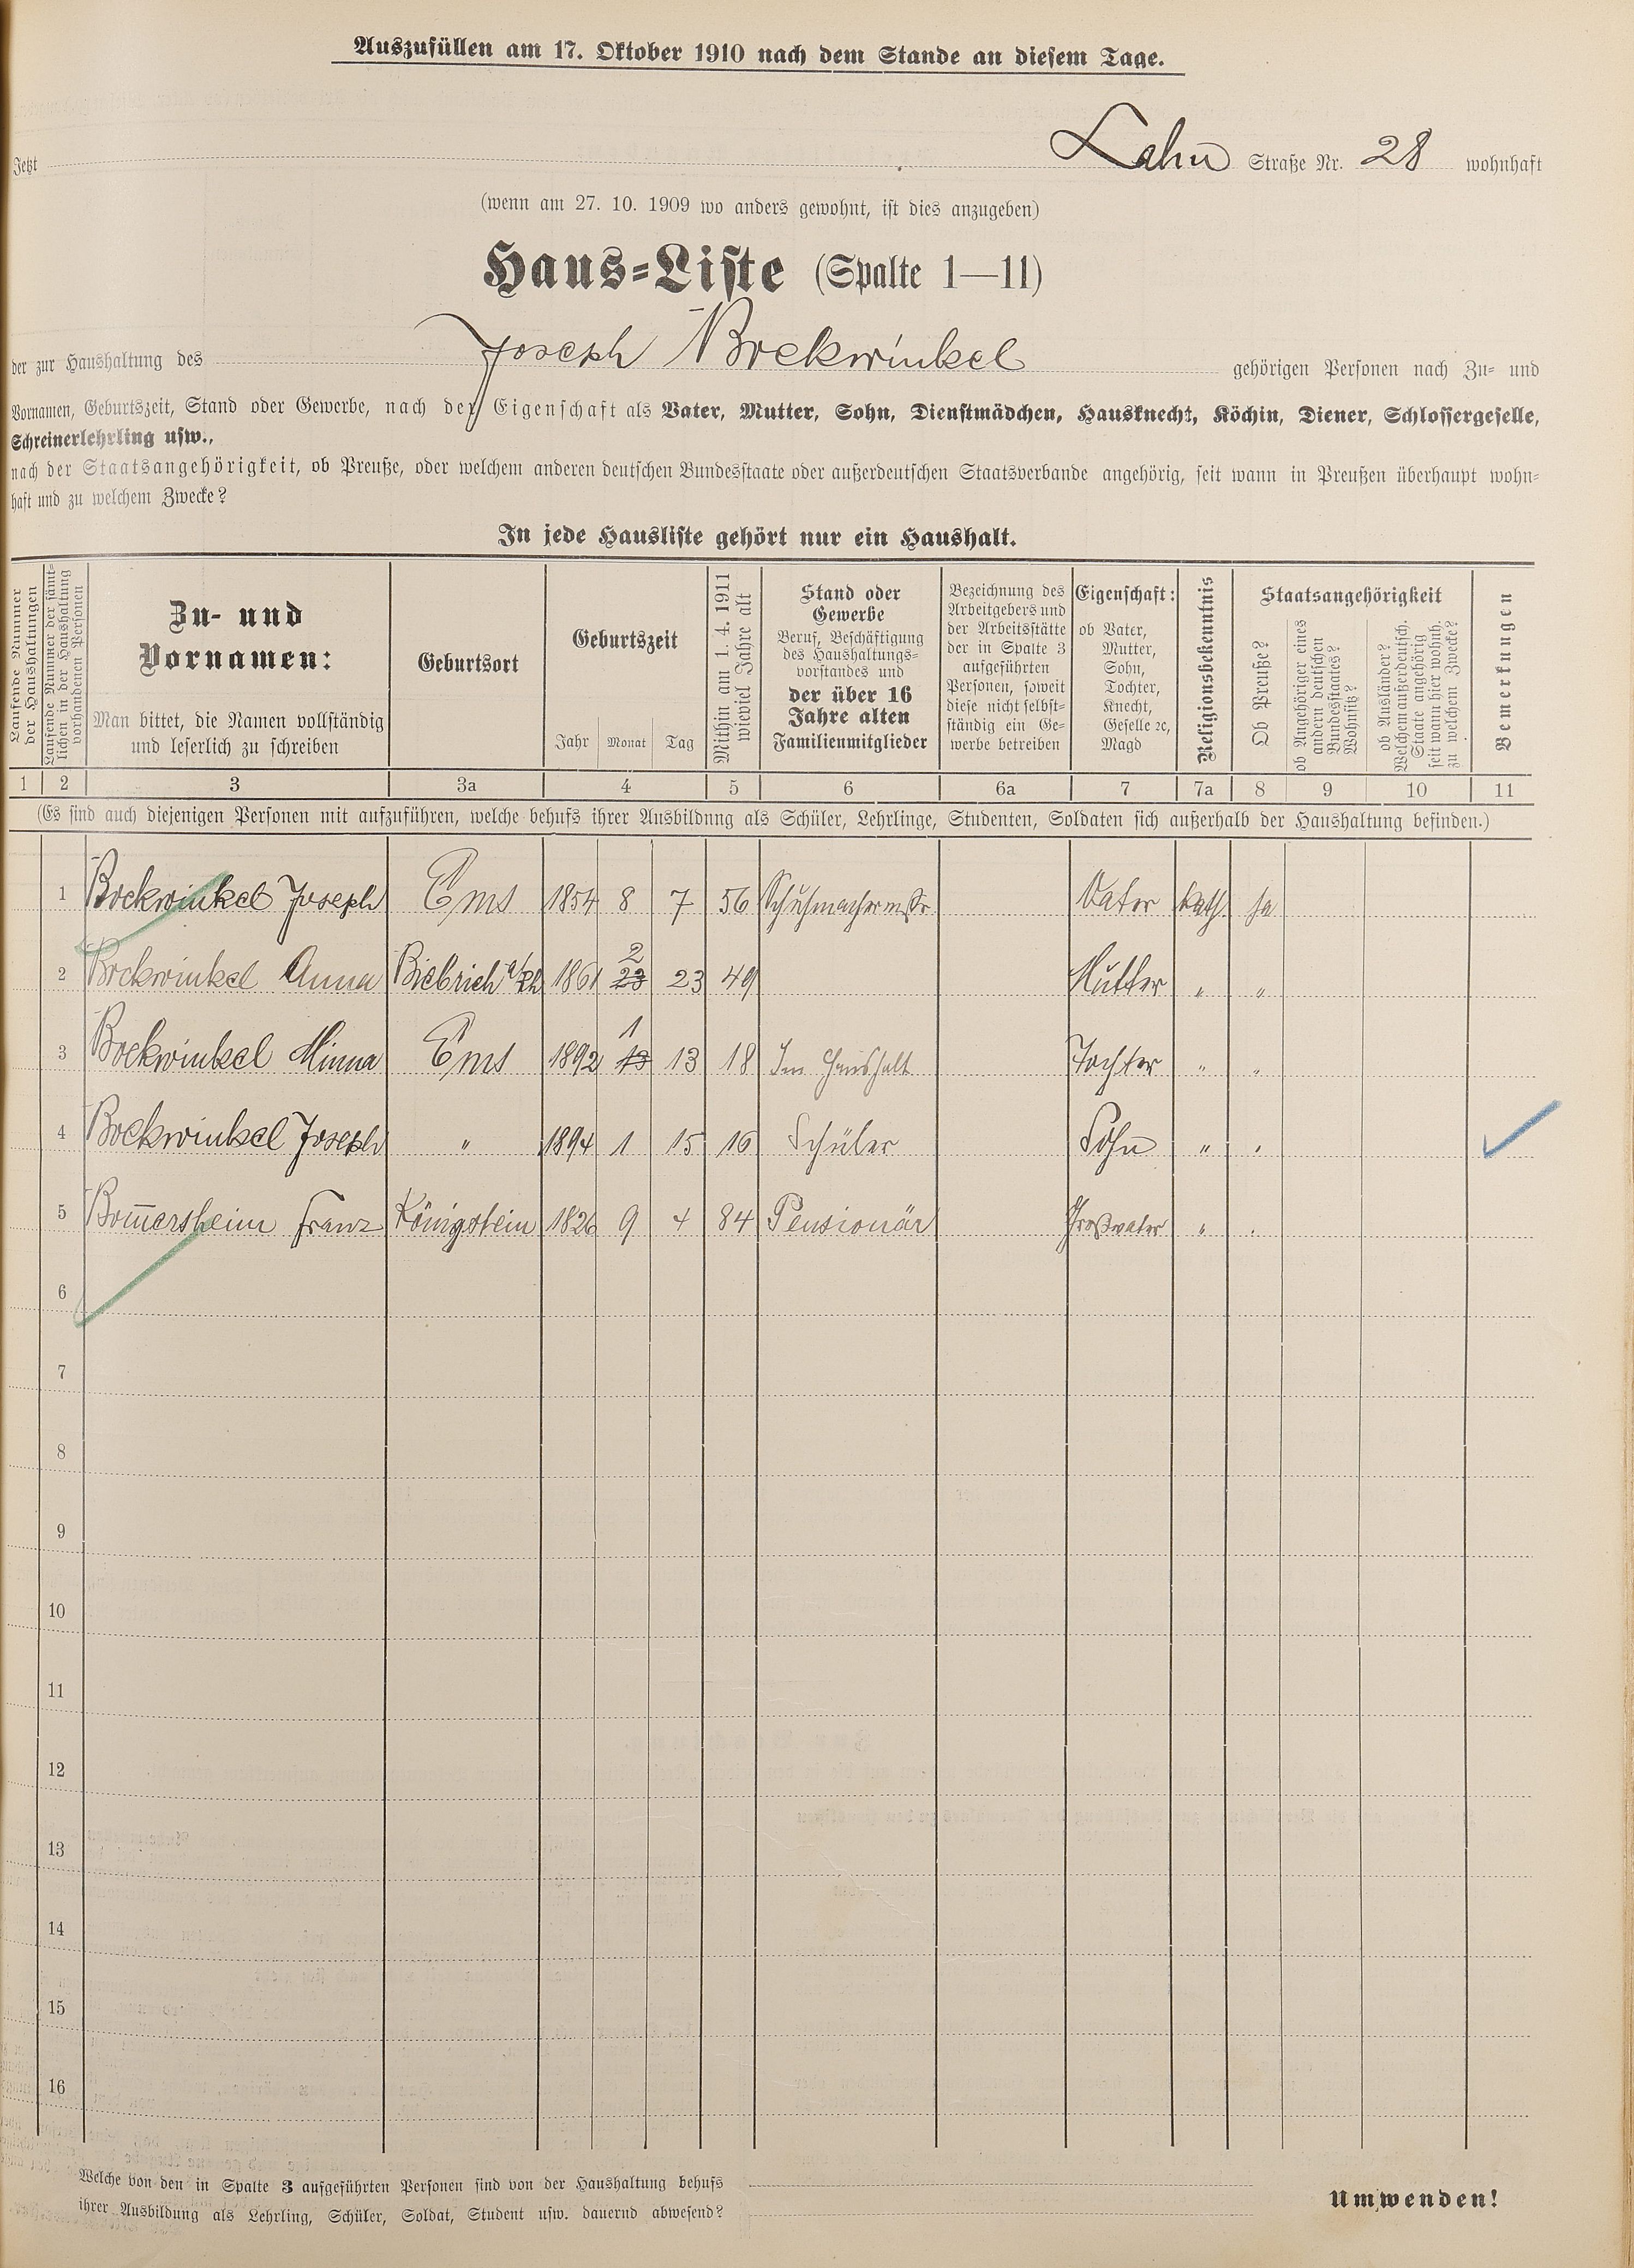 Auszufüllen am 17. Oktober 1910 nach dem Stande an diesem Tage.
Jetzt Lahn Straße Nr. 28 wohnhaft
(wenn am 27. 10. 1909 wo anders gewohnt, ist dies anzugeben)
Haus-Liste (Spalte 1—11)
der zur Haushaltung des Joseph Bockwinkel gehörigen Personen nach Zu- und
Vornamen, Geburtszeit, Stand oder Gewerbe, nach der Eigenschaft als Vater, Mutter, Sohn, Dienstmädchen, Hausknecht, Köchin, Diener, Schlossergeselle,
Schreinerlehrling usw.,
nach der Staatsangehörigkeit, ob Preuße, oder welchem anderen deutschen Bundesstaate oder außerdeutschen Staatsverbande angehörig, seit wann in Preußen überhaupt wohn-
haft und zu welchem Zwecke?
In jede Hausliste gehört nur ein Haushalt.
Laufende Nummer
der Haushaltungen
Laufende Nummer der sämt-
lichen in der Haushaltung
vorhandenen Personen
Zu- und
Vornamen:
Man bittet, die Namen vollständig
und leserlich zu schreiben
Geburtsort
Geburtszeit
Jahr Monat Tag
Mithin am 1. 4. 1911
wieviel Jahre alt
Stand oder
Gewerbe
Beruf, Beschäftigung
des Haushaltungs-
vorstandes und
der über 16
Jahre alten
Familienmitglieder
Bezeichnung des
Arbeitgebers und
der Arbeitsstätte
der in Spalte 3
aufgeführten
Personen, soweit
diese nicht selbst-
ständig ein Ge-
werbe betreiben
Eigenschaft:
ob Vater,
Mutter,
Sohn,
Tochter,
Knecht,
Geselle ꝛc,
Magd
Religionsbekenntnis
Staatsangehörigkeit
Ob Preuße?
ob Angehöriger eines
andern deutschen
Bundesstaates?
Wohnsitz?
ob Ausländer?
Welchem außerdeutsch.
Staate angehörig
seit wann hier wohnh.
zu welchem Zwecke?
Bemerkungen
1 2 3 3a 4 5 6 6a 7 7a 8 9 10 11
(Es sind auch diejenigen Personen mit aufzuführen, welche behufs ihrer Ausbildung als Schüler, Lehrlinge, Studenten, Soldaten sich außerhalb der Haushaltung befinden.)
1 Bockwinkel Joseph Ems 1854 8 7 56 Schuhmachermstr. Vater kath. ja
2
2 Bockwinkel Anna Biebrich a/Rh 1861 23 23 49 Mutter " "
1
3 Bockwinkel Minna Ems 1892 13 13 18 Im Haushalt Tochter " "
4 Bockwinkel Joseph " 1894 1 15 16 Schüler Sohn " "
5 Bom̅ersheim Franz Königstein 1826 9 4 84 Pensionär Großvater " "
6
7
8
9
10
11
12
13
14
15
16
Welche von den in Spalte 3 aufgeführten Personen sind von der Haushaltung behufs
ihrer Ausbildung als Lehrling, Schüler, Soldat, Student usw. dauernd abwesend?
Umwenden!